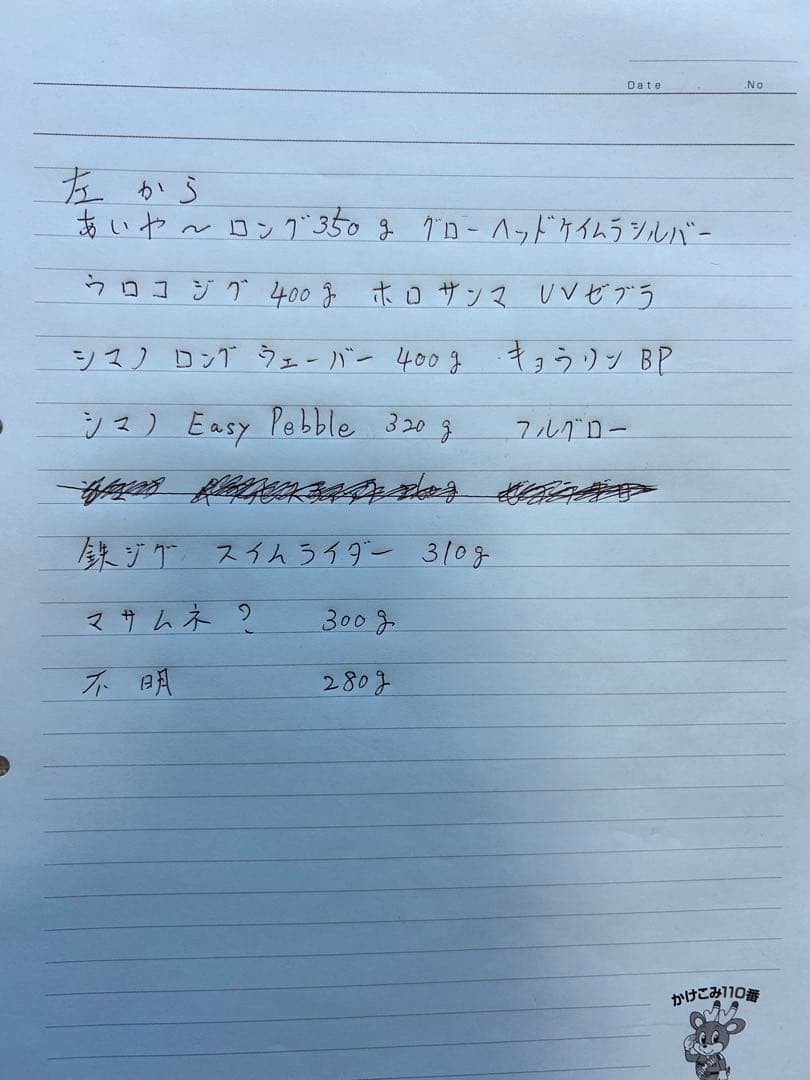 Date . .No
左から
あいや～ロング350g グローヘッドケイムラシルバー
ウロコジグ 400g ホロサンマ UVゼブラ
シマノ ロングウェーバー 400g キョウリンBP
シマノ Easy Pebble 320g フルグロー
鉄ジグ スイムライダー 310g
マサムネ? 300g
不明 280g
かけこみ110番